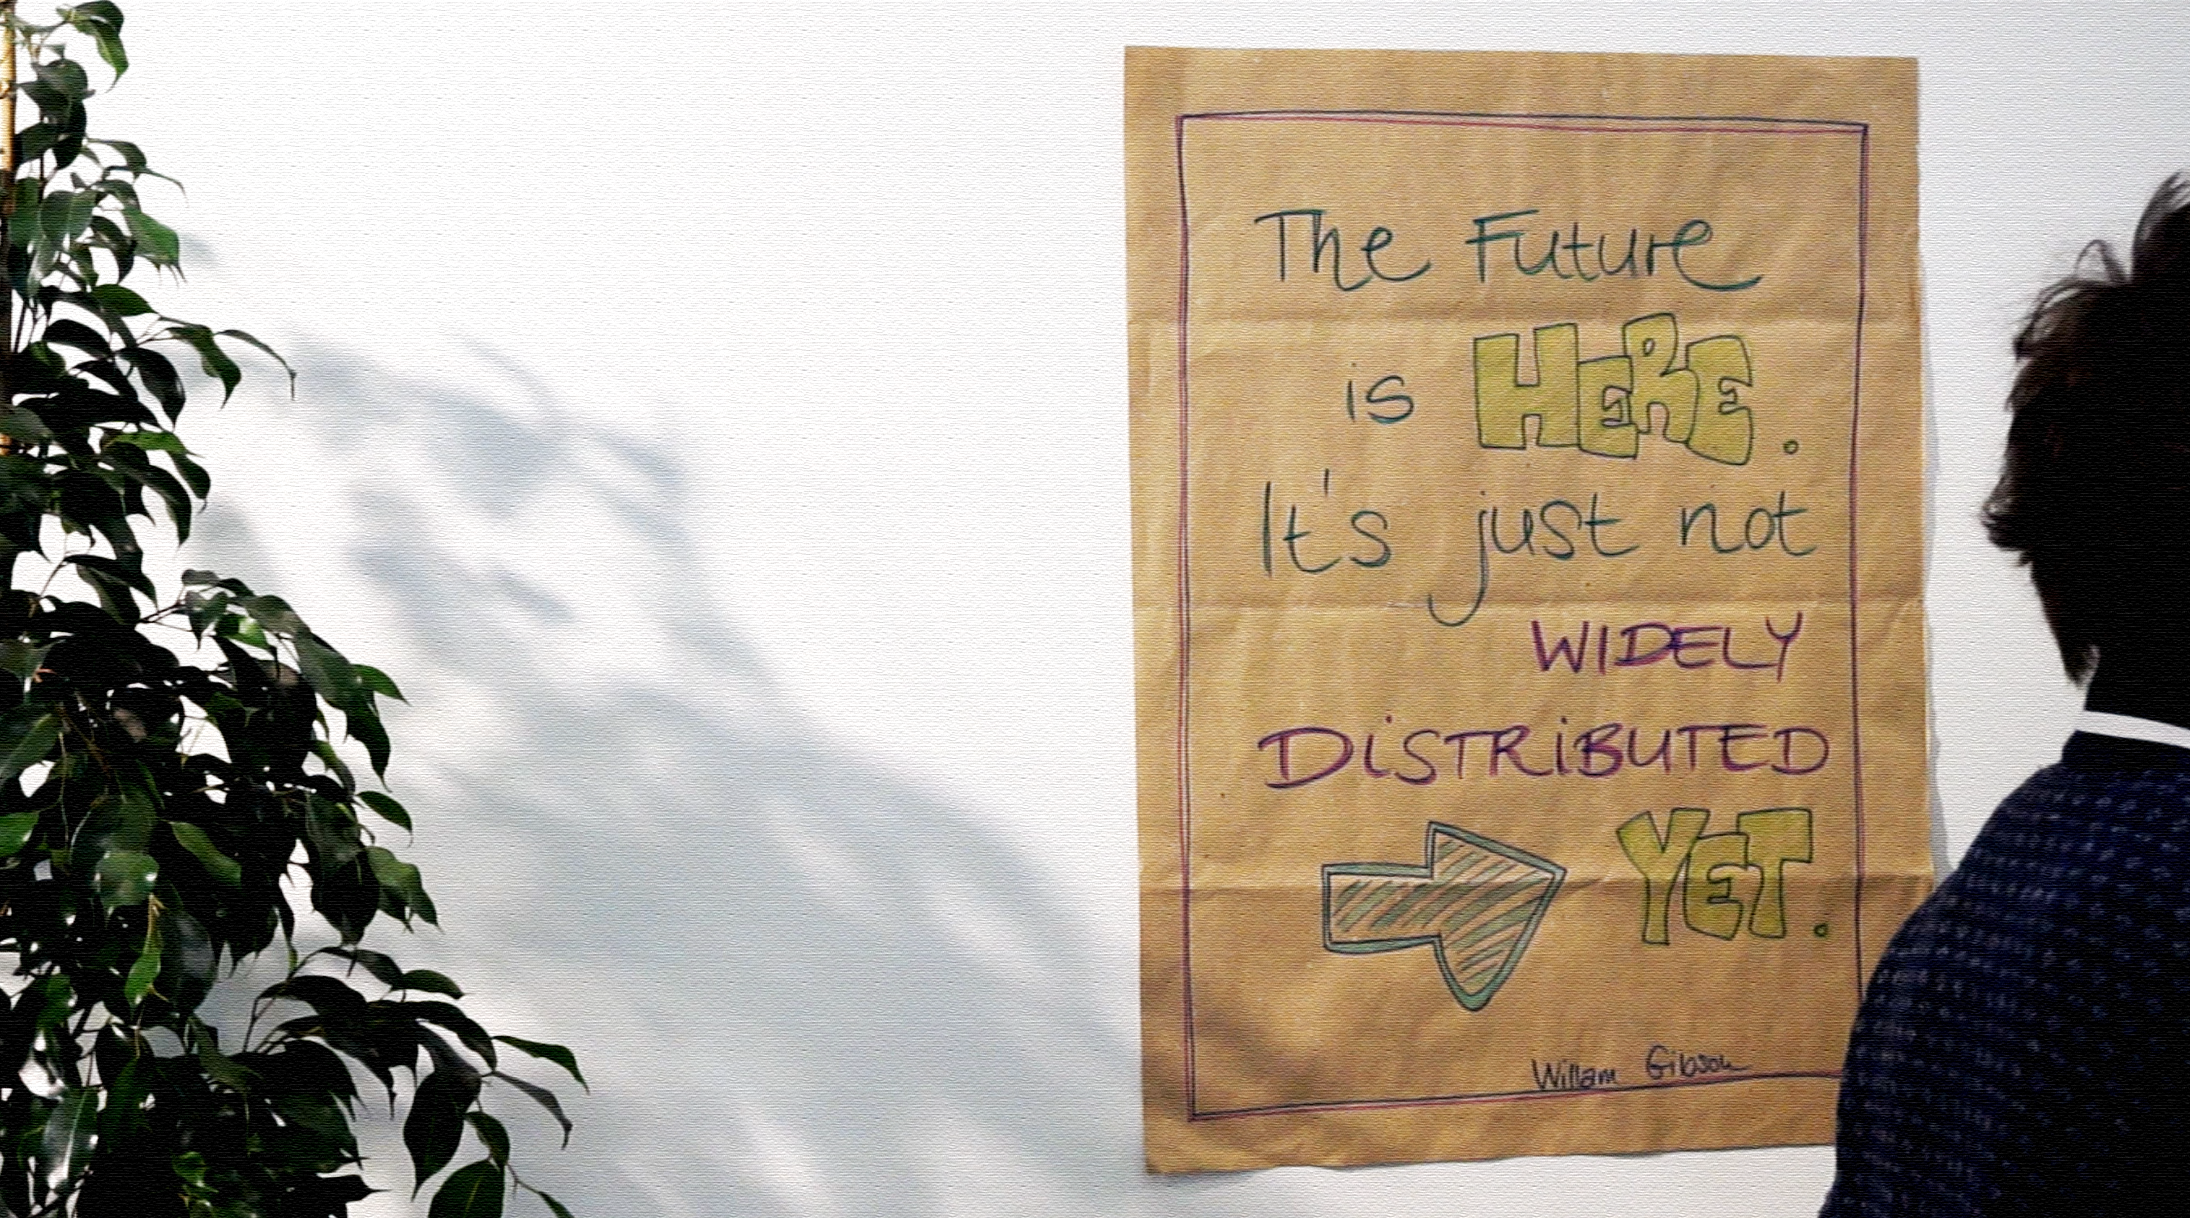 The Future
is HERE.
It's just not
WIDELY
DiSTRiBUTED
YET.
Willam Gibson